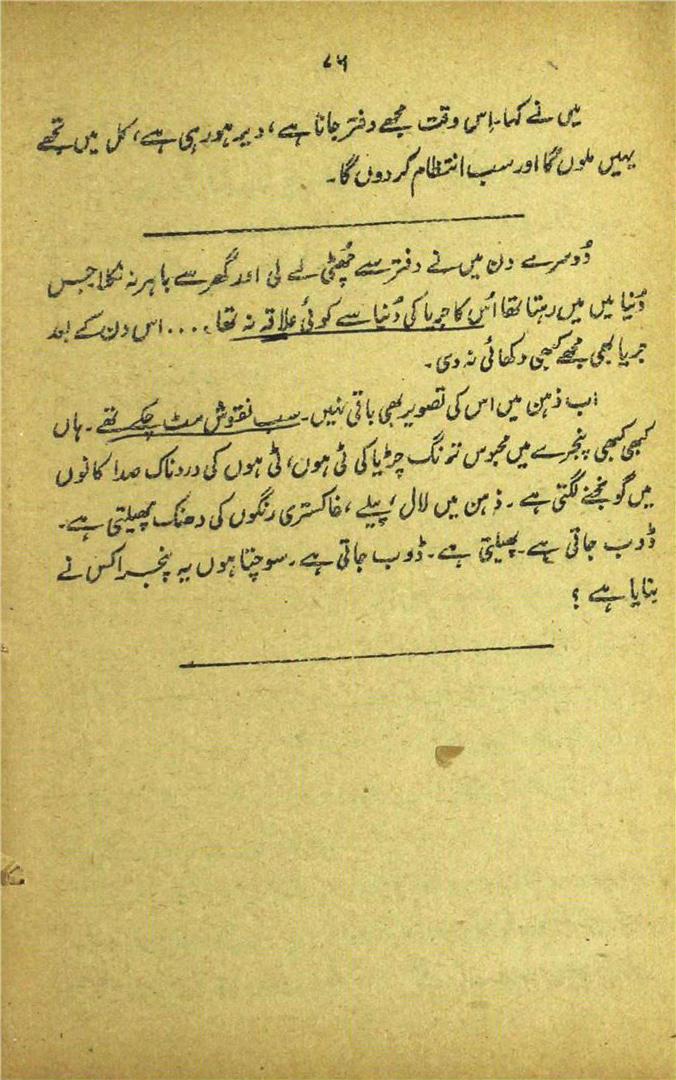 ۷۶
میں نے کہا۔ اِس وقت مجھے دفتر جانا ہے، دیر ہو رہی ہے، کل میں تجھے
یہیں ملوں گا اور سب انتظام کر دوں گا۔
دُوسرے دن میں نے دفتر سے چُھٹی لے لی اور گھر سے باہر نہ نکلا جس
دُنیا میں میں رہتا تھا اُس کا جریا کی دُنیا سے کوئی علاقہ نہ تھا .... اس دن کے بعد
جریا بھی مجھے کبھی دکھائی نہ دی۔
اب ذہن میں اس کی تصویر بھی باقی نہیں۔ سب نقوش مٹ چکے تھے۔ ہاں
کبھی کبھی پنجرے میں محبوس چڑیا کی ٹی ہوں، ٹی ہوں کی دردناک صدا کانوں
میں گونجنے لگتی ہے۔ ذہن میں لال، پیلے، خاکستری رنگوں کی دھنک پھیلتی ہے۔
ڈوب جاتی ہے۔ پھیلتی ہے۔ ڈوب جاتی ہے۔ سوچتا ہوں یہ پنجرا کس نے
بنایا ہے ؟